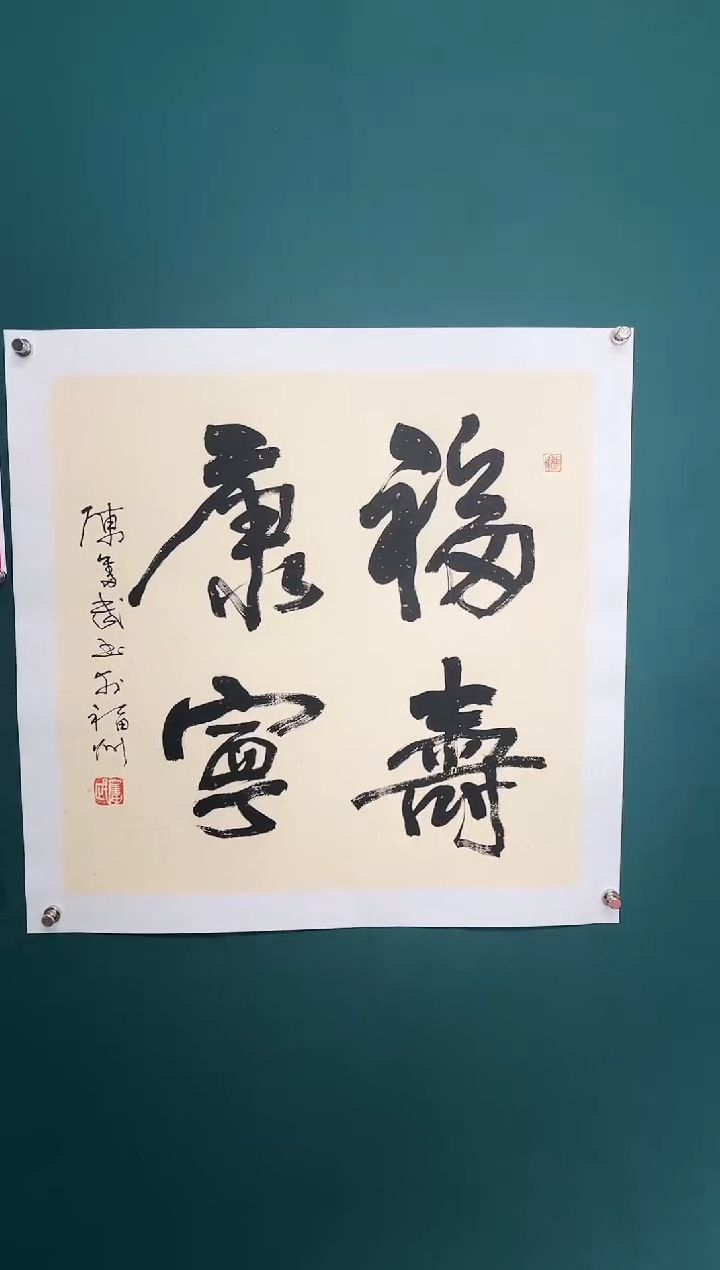 福壽
康寧
陳奮武書於福州